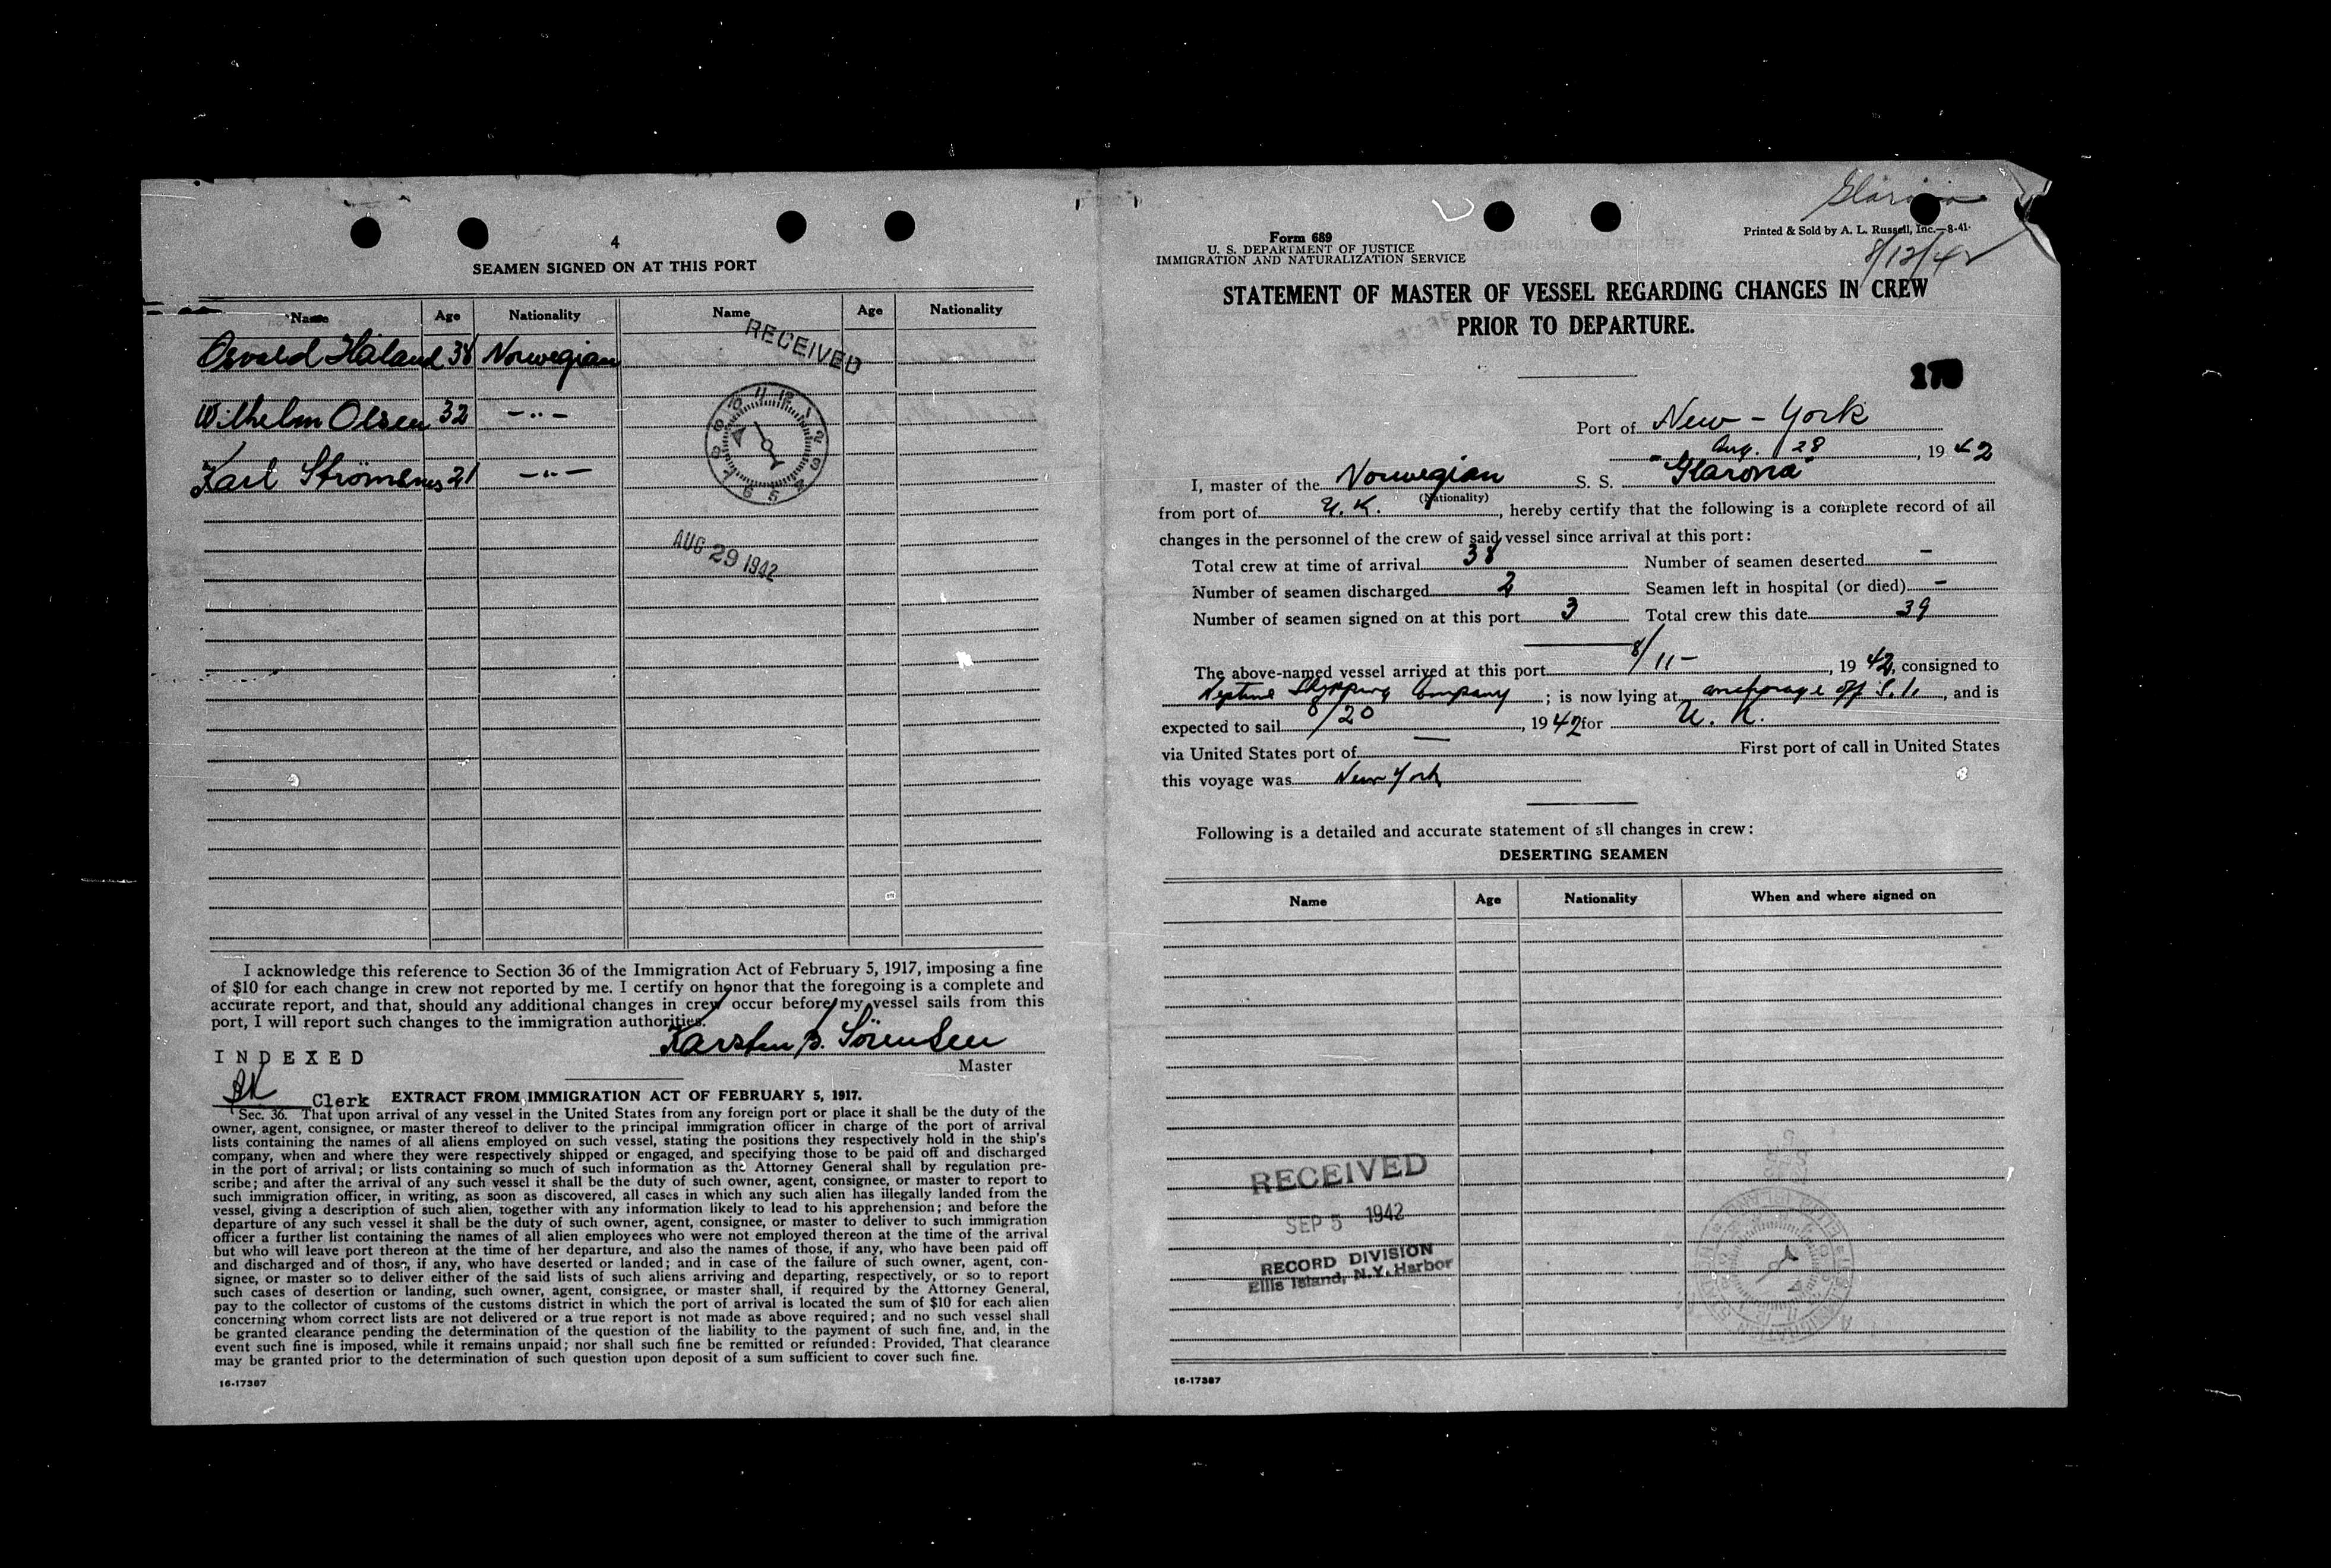 4
SEAMEN SIGNED ON AT THIS PORT
Name Age Nationality Name Age Nationality
Osvald Haland 38 Norwegian
Wilhelm Olsen 32 -"-
Karl 21 -"-
RECEIVED
AUG 29 1942
I acknowledge this reference to Section 36 of the Immigration Act of February 5, 1917, imposing a fine
of $10 for each change in crew not reported by me. I certify on honor that the foregoing is a complete and
accurate report, and that, should any additional changes in crew occur before my vessel sails from this
port, I will report such changes to the immigration authorities.
Karsten B. Sörensen
Master
INDEXED
Clerk
EXTRACT FROM IMMIGRATION ACT OF FEBRUARY 5, 1917.
Sec. 36. That upon arrival of any vessel in the United States from any foreign port or place it shall be the duty of the
owner, agent, consignee, or master thereof to deliver to the principal immigration officer in charge of the port of arrival
lists containing the names of all aliens employed on such vessel, stating the positions they respectively hold in the ship's
company, when and where they were respectively shipped or engaged, and specifying those to be paid off and discharged
in the port of arrival; or lists containing so much of such information as the Attorney General shall by regulation pre-
scribe; and after the arrival of any such vessel it shall be the duty of such owner, agent, consignee, or master to report to
such immigration officer, in writing, as soon as discovered, all cases in which any such alien has illegally landed from the
vessel, giving a description of such alien, together with any information likely to lead to his apprehension; and before the
departure of any such vessel it shall be the duty of such owner, agent, consignee, or master to deliver to such immigration
officer a further list containing the names of all alien employees who were not employed thereon at the time of the arrival
but who will leave port thereon at the time of her departure, and also the names of those, if any, who have been paid off
and discharged and of those, if any, who have deserted or landed; and in case of the failure of such owner, agent, con-
signee, or master so to deliver either of the said lists of such aliens arriving and departing, respectively, or so to report
such cases of desertion or landing, such owner, agent, consignee, or master shall, if required by the Attorney General,
pay to the collector of customs of the customs district in which the port of arrival is located the sum of $10 for each alien
concerning whom correct lists are not delivered or a true report is not made as above required; and no such vessel shall
be granted clearance pending the determination of the question of the liability to the payment of such fine, and, in the
event such fine is imposed, while it remains unpaid; nor shall such fine be remitted or refunded: Provided, That clearance
may be granted prior to the determination of such question upon deposit of a sum sufficient to cover such fine.
16-17387
Glarona
Form 689
U. S. DEPARTMENT OF JUSTICE
IMMIGRATION AND NATURALIZATION SERVICE
Printed & Sold by A. L. Russell, Inc.—8-41.
8/12/42
STATEMENT OF MASTER OF VESSEL REGARDING CHANGES IN CREW
PRIOR TO DEPARTURE.
Port of New - York
Aug. 28, 1942
I, master of the Norwegian S. S. "Glarona"
(Nationality)
from port of U. K., hereby certify that the following is a complete record of all
changes in the personnel of the crew of said vessel since arrival at this port:
Total crew at time of arrival 38 Number of seamen deserted -
Number of seamen discharged 2 Seamen left in hospital (or died) -
Number of seamen signed on at this port 3 Total crew this date 39
The above-named vessel arrived at this port 8/11-, 1942, consigned to
Neptune Shipping Company; is now lying at anchorage off S. I., and is
expected to sail 8/20, 1942 for U. K.
via United States port of — First port of call in United States
this voyage was New York
Following is a detailed and accurate statement of all changes in crew:
DESERTING SEAMEN
Name Age Nationality When and where signed on
RECEIVED
SEP 5 1942
RECORD DIVISION
Ellis Island, N.Y. Harbor
16-17387